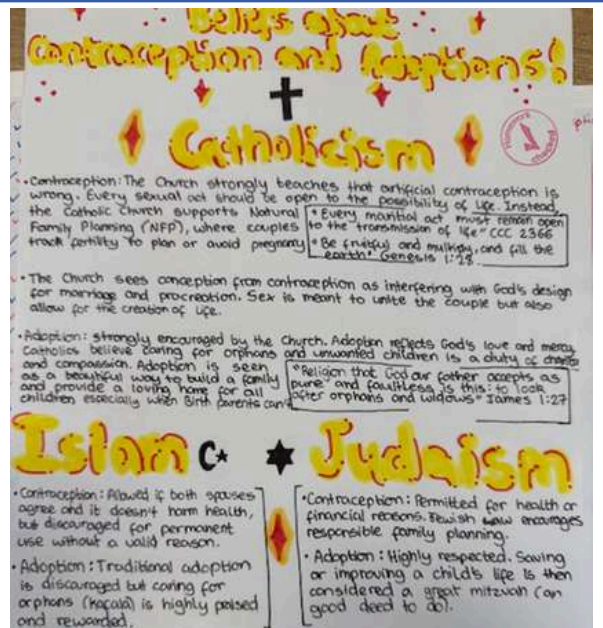 Beliefs about
Contraception and Adoptions!
Catholicism
Homework
checked
• Contraception: The Church strongly teaches that artificial contraception is
wrong. Every sexual act should be open to the possibility of life. Instead,
the Catholic Church supports Natural
Family Planning (NFP), where couples
track fertility to plan or avoid pregnancy
"Every marital act must remain open
to the transmission of life" CCC 2366
"Be fruitful and multiply, and fill the
earth" Genesis 1:28
• The Church sees conception from contraception as interfering with God's design
for marriage and procreation. Sex is meant to unite the couple but also
allow for the creation of life.
• Adoption: strongly encouraged by the Church. Adoption reflects God's love and mercy.
Catholics believe caring for orphans and unwanted children is a duty of
and compassion. Adoption is seen
as a beautiful way to build a family
and provide a loving home for all
children especially when Birth parents can't
"Religion that God our father accepts as
pure and faultless is this: to look
after orphans and widows" James 1:27
Islam
• Contraception: Allowed if both spouses
agree and it doesn't harm health,
but discouraged for permanent
use without a valid reason.
• Adoption: Traditional adoption
is discouraged but caring for
orphans (kafala) is highly praised
and rewarded.
Judaism
• Contraception: Permitted for health or
financial reasons. Jewish law encourages
responsible family planning.
• Adoption: Highly respected. Saving
or improving a child's life is then
considered a great mitzvah (an
good deed to do).